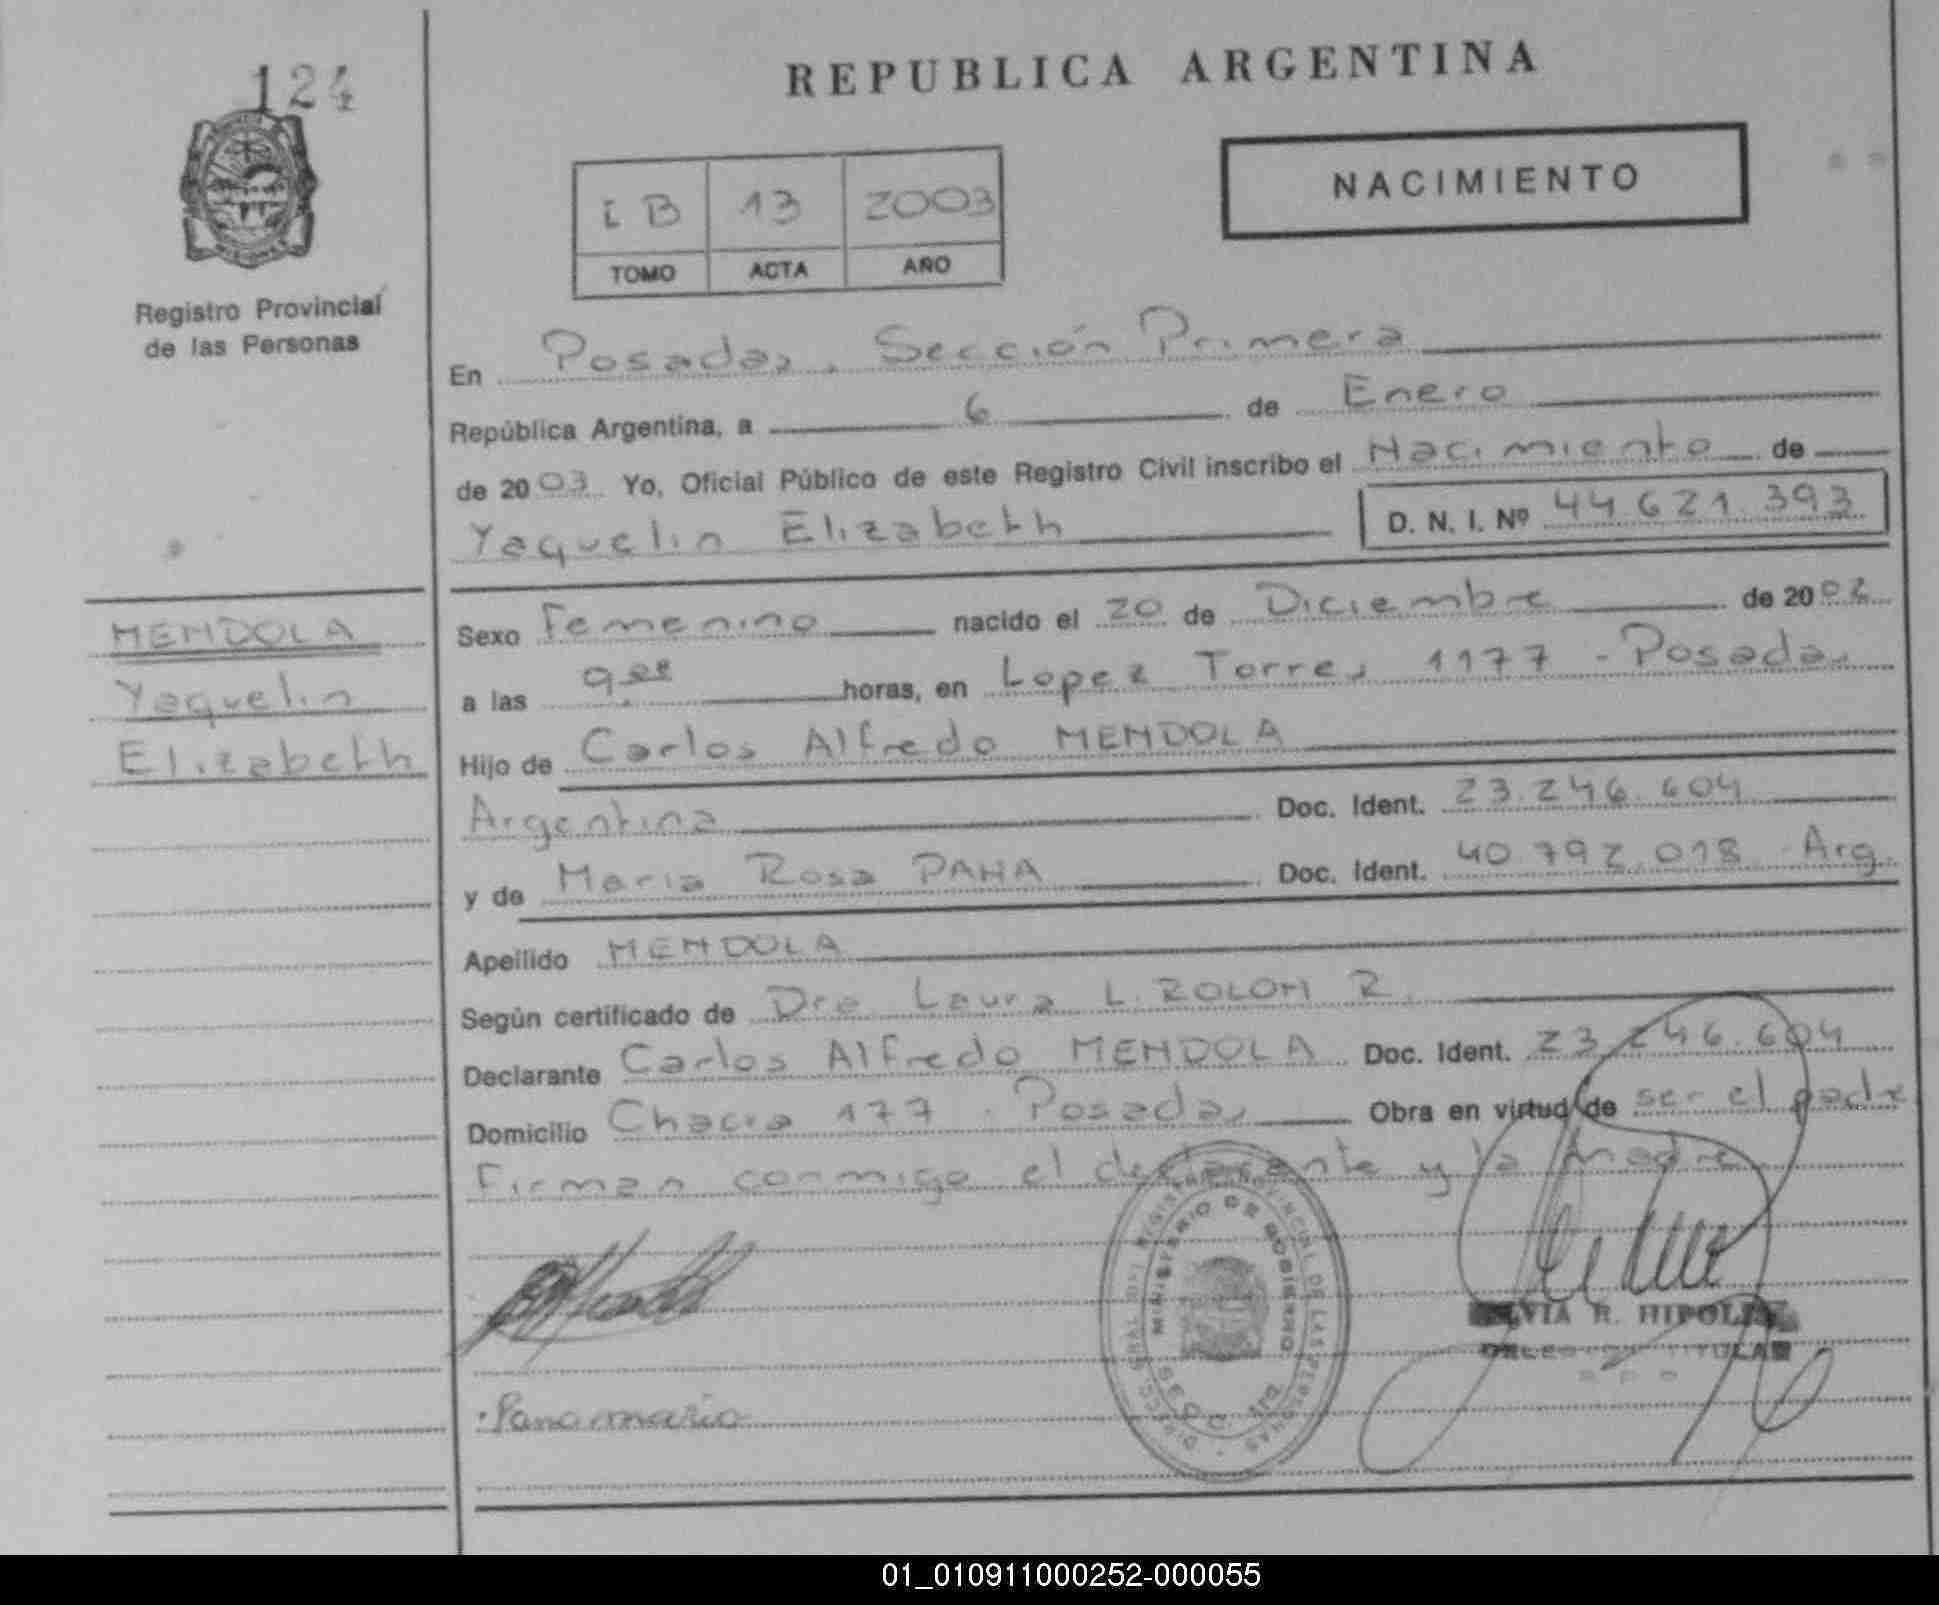 124
REPUBLICA ARGENTINA
NACIMIENTO
I B 13 2003
TOMO ACTA AÑO
Registro Provincial
de las Personas
En Posadas, Sección Primera
República Argentina, a 6 de Enero
de 2003 Yo, Oficial Público de este Registro Civil inscribo el Nacimiento de
Yaquelin Elizabeth D. N. I. Nº 44.621.393
MENDOLA
Yaquelin
Elizabeth
Sexo Femenino nacido el 20 de Diciembre de 2002
a las 9 horas, en Lopez Torres 1177 - Posadas
Hijo de Carlos Alfredo MENDOLA
Argentina Doc. Ident. 23.246.604
y de Maria Rosa PANA Doc. Ident. 40.792.018 Arg.
Apellido MENDOLA
Según certificado de Dra Laura L. ROLON R.
Declarante Carlos Alfredo MENDOLA Doc. Ident. 23.246.604
Domicilio Chacra 177 - Posadas Obra en virtud de ser el padre
Firman conmigo el declarante y la madre
MINISTERIO DE GOBIERNO
R. HIPOLI
TITULAR
Pana maria
01_010911000252-000055